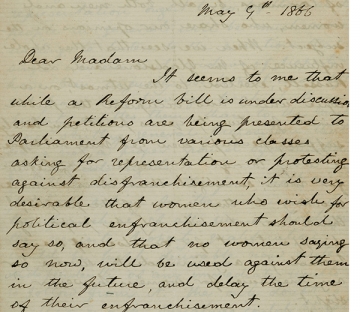 May 9th 1866
Dear Madam
It seems to me that
while a Reform Bill is under discussion
and petitions are being presented to
Parliament from various classes
asking for representation or protesting
against disfranchisement, it is very
desirable that women who wish for
political enfranchisement should
say so, and that no women saying
so now, will be used against them
in the future, and delay the time
of their enfranchisement.